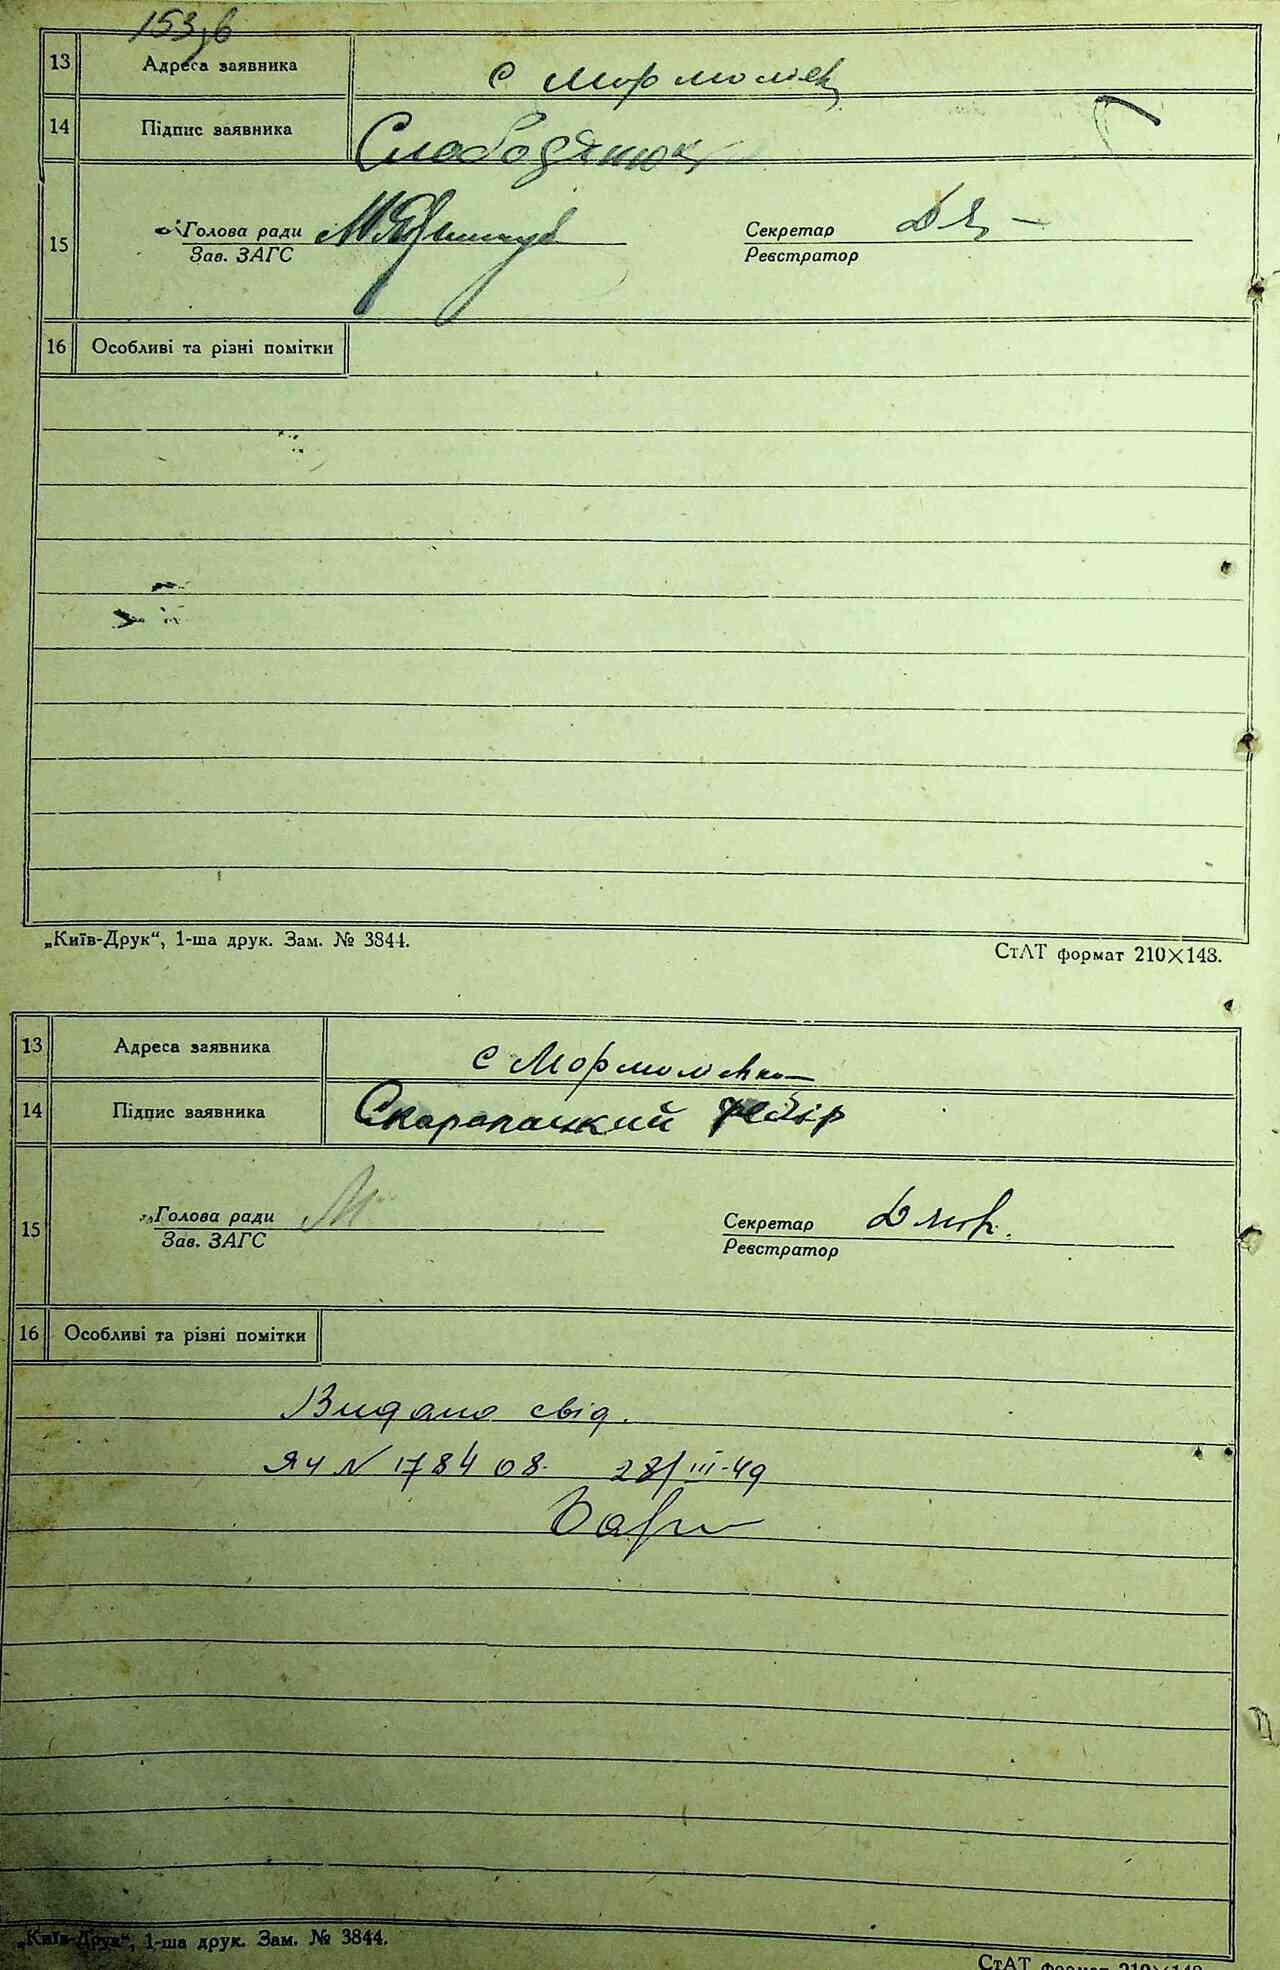 153зв
13 Адреса заявника с Мормоліївк
14 Підпис заявника Слободянюк
15 Голова ради Секретар
Зав. ЗАГС Реєстратор
16 Особливі та різні помітки
„Київ-Друк“, 1-ша друк. Зам. № 3844.
СтАТ формат 210×148.
13 Адреса заявника с Мормоліївка
14 Підпис заявника Скоропацкий Федір
15 Голова ради Секретар
Зав. ЗАГС Реєстратор
16 Особливі та різні помітки
Видано свід.
ЯЧ N 178408. 28/III-49
„Київ-Друк“, 1-ша друк. Зам. № 3844.
СтАТ формат 210×148.